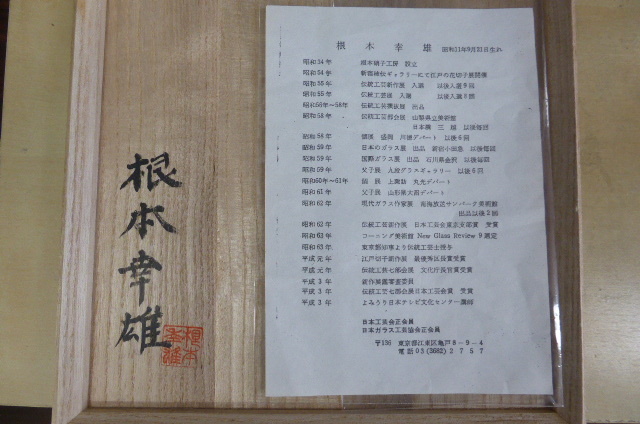 根本幸雄
根本幸雄 昭和11年9月21日生れ
昭和34年 根本硝子工房 設立
昭和54年 新宿紳伝ギャラリーにて江戸の花切子展開催
昭和55年 伝統工芸新作展 入選 以後入選9回
昭和55年 伝統工芸展 入選 以後入選8回
昭和56年~58年 伝統工芸撰抜展 出品
昭和58年 伝統工芸部会展 山梨県立美術館
日本橋 三越 以後毎回
昭和58年 個展 盛岡 川徳デパート 以後6回
昭和59年 日本のガラス展 出品 新宿小田急 以後毎回
昭和59年 国際ガラス展 出品 石川県金沢 以後毎回
昭和59年 父子展 九段グラスギャラリー 以後6回
昭和60年~61年 個展 上諏訪 丸光デパート
昭和61年 父子展 山形県大沼デパート
昭和62年 現代ガラス作家展 南海放送サンパーク美術館
出品以後2回
昭和62年 伝統工芸新作展 日本工芸会東京支部賞 受賞
昭和63年 コーニング美術館 New Glass Review 9 選定
昭和63年 東京都知事より伝統工芸士授与
平成元年 江戸切子新作展 最優秀区長賞受賞
平成元年 伝統工芸七部会展 文化庁長官賞受賞
平成3年 新作展鑑審査委員
平成3年 伝統工芸七部会展日本工芸会賞 受賞
平成3年 よみうり日本テレビ文化センター講師
日本工芸会正会員
日本ガラス工芸協会正会員
〒136 東京都江東区亀戸8-9-4
電話03(3682)2757